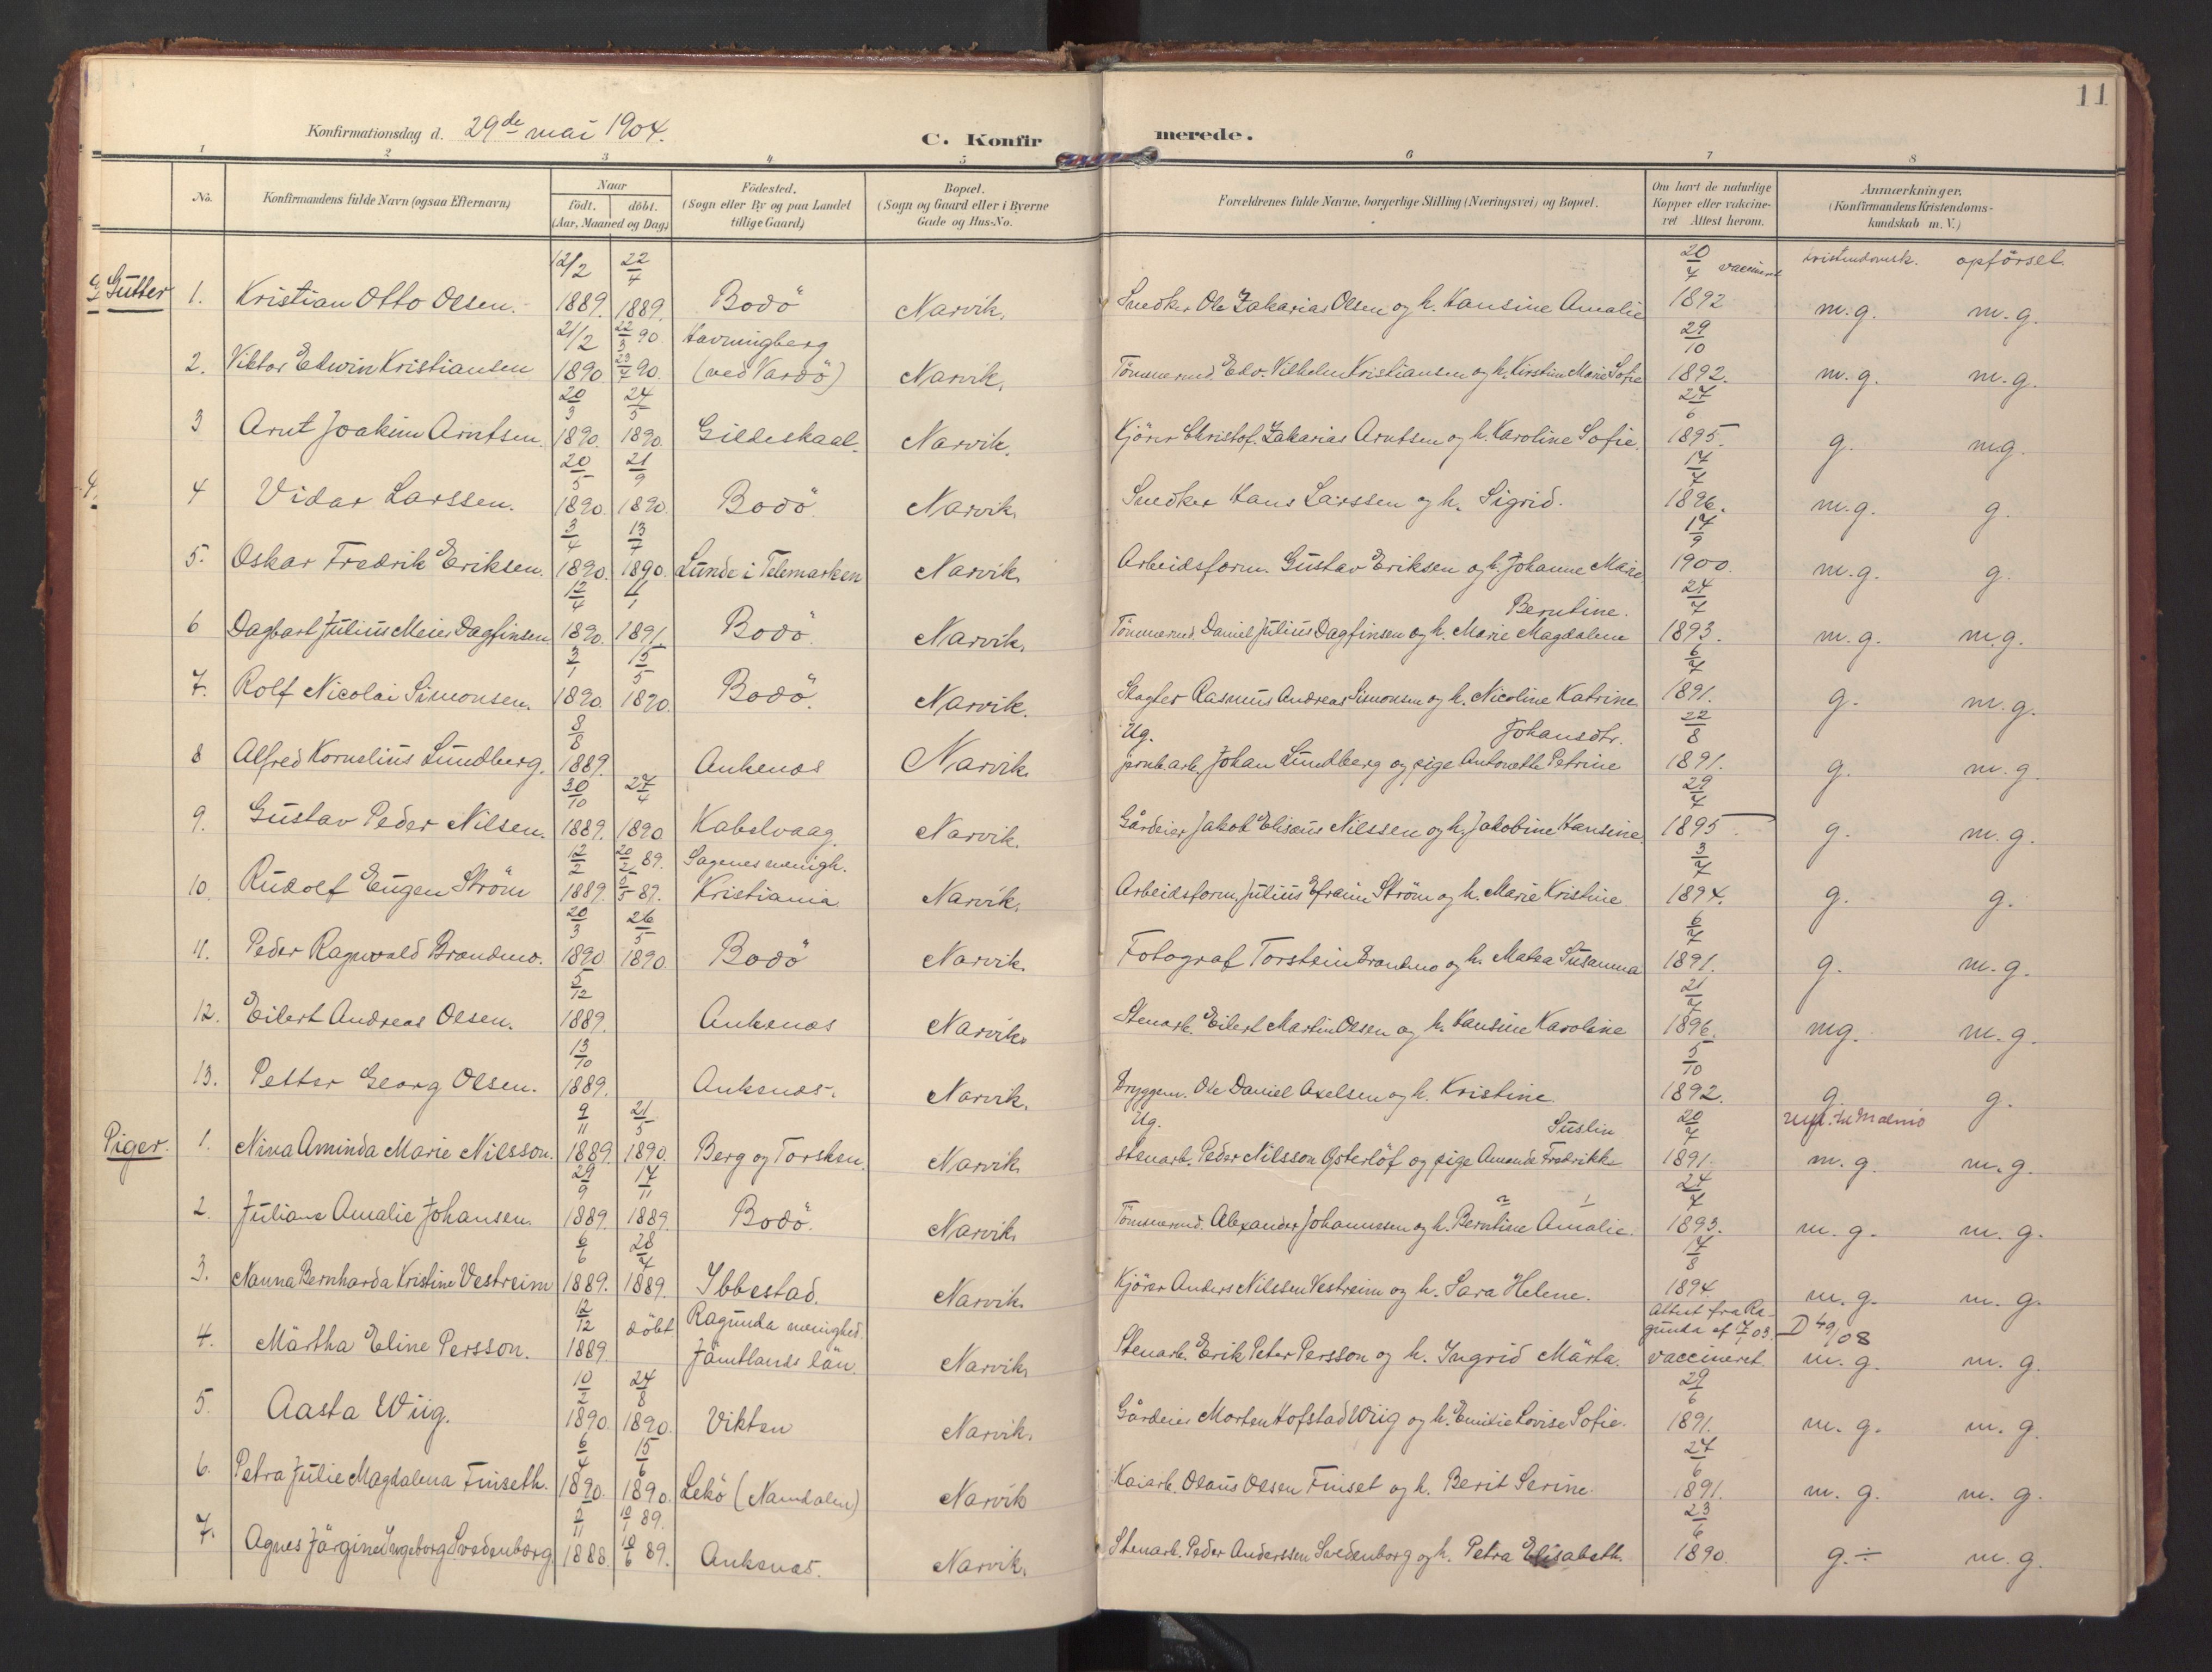 11
Konfirmationsdag d. 29de mai 1904.
C. Konfirmerede.
1 2 3 4 5 6 7 8
No. | Konfirmandens fulde Navn (ogsaa Efternavn) | Naar födt. döbt. (Aar, Maaned og Dag) | Födested. (Sogn eller By og paa Landet tillige Gaard) | Bopæl. (Sogn og Gaard eller i Byerne Gade og Hus-No. | Forældrenes fulde Navne, borgerlige Stilling (Næringsvei) og Bopæl. | Om havt de naturlige Kopper eller vakcineret Attest herom. | Anmærkninger. (Konfirmandens Kristendomskundskab m. V.)
kristendomsk. opförsel.
Gutter 1. Kristian Otto Olsen. 12/2 1889. 22/4 1889. Bodö Narvik. Snedker Ole Zakarias Olsen og h. Hansine Amalie 20/7 vaccineret 1892 m.g. m.g.
2. Viktor Edwin Kristiansen 21/2 1890. 22/3 90. 23/7 90. Havningberg (ved Vardö) Narvik. Tömmermd. Edv. Vilhelm Kristiansen og h. Kirstine Marie Sofie 29/10 1892. m.g. m.g.
3 Arnt Joakim Arntsen. 20/3 1890. 24/5 1890. Gildeskaal. Narvik. Kjörer Christof. Zakarias Arntsen og h. Karoline Sofie. 27/6 1895. g. mg.
4 Vidar Larssen. 20/5 1890. 21/9 1890. Bodö. Narvik. Snedker Hans Larssen og h. Sigrid. 17/7 1896. m.g. g.
5. Oskar Fredrik Eriksen. 3/4 1890. 13/7 1890. Lunde i Telemarken Narvik. Arbeidsform. Gustav Eriksen og h. Johanne Marie Berntine. 17/9 1900. m.g. g.
6 Dagbart Julius Meier Dagfinsen 12/4 1890. 11/1 1891. Bodö. Narvik. Tömmermd. Daniel Julius Dagfinsen og h. Marie Magdalene 24/7 1893. m.g. m.g.
7. Rolf Nicolai Simonsen. 3/1 1890. 15/5 1890. Bodö. Narvik. Slagter Rasmus Andreas Simonsen og h. Nicoline Katrine. 6/7 1891. g. m.g.
8 Alfred Kornelius Lundberg. 8/8 1889. Ankenæs Narvik. Ug. jernb.arb. Johan Lundberg og pige Antonette Petrine Johansdtr. 22/8 1891. g. m.g.
9. Gustav Peder Nilsen. 30/10 1889. 27/4 1890 Kabelvaag. Narvik. Gårdeier Jakob Elisæus Nilssen og h. Jakobine Hansine. 29/7 1895. g. m.g.
10. Rudolf Eugen Ström 12/2 1889. 20/2 89. 5/5 89. Sagenes menigh. Kristiania Narvik. Arbeidsform. Julius Efraim Ström og h. Marie Kristine. 3/7 1894. g. g.
11. Peder Ragnvald Brandmo. 20/3 1890 26/5 1890. Bodö Narvik. Fotograf Torstein Brandmo og h. Matea Susanna 6/7 1891. g. m.g.
12. Eilert Andreas Olsen. 5/12 1889. Ankenæs Narvik. Stenarb. Eilert Martin Olsen og h. Hansine Karoline 21/7 1896. mg. m.g.
13. Petter Georg Olsen. 13/10 1889. Ankenæs. Narvik. Bryggem. Ole Daniel Axelsen og h. Kristine. 5/10 1892. g. g.
Piger. 1. Nina Aminda Marie Nilsson. 9/11 1889. 21/5 1890. Berg og Torsken. Narvik. Ug. stenarb. Peder Nilsson Österlöf og pige Amanda Fredrikke Suslin 20/7 1891. m.g. m.g.
2. Juliane Amalie Johansen. 29/9 1889. 17/11 1889. Bodö. Narvik. Tömmermd. Alexander Johannesen og h. Berntine Amalie. 24/7 1893. m.g. m.g.
3. Nanna Bernharda Kristine Vestreim 6/6 1889. 28/7 1889. Ibbestad. Narvik. Kjörer Anders Nilssen Vestreim og h. Sara Helene. 17/8 1894. m.g. m.g.
4. Märtha Eline Persson. 12/12 1889. döbt Ragunda menighed. Jämtlands län. Narvik. Stenarb. Erik Peter Persson og h. Ingrid Märta. Attest fra Ragunda af 7/1 03. vaccineret. D 49/08 m.g. m.g.
5. Aasta Wiig. 10/2 1890. 24/8 1890. Vikten Narvik. Gårdeier Morten Hofstad Wiig og h. Emilie Lovise Sofie. 29/6 1891. m.g. m.g.
6. Petra Julie Magdalena Finseth. 6/4 1890. 15/6 1890. Lekö (Namdalen) Narvik Kaiarb. Olaus Olsen Finset og h. Berit Serine. 27/6 1891. m.g. m.g.
7. Agnes Järgine Ingeborg Svedenborg. 11 1888. 10/1 89. 10/6 89. Ankenæs. Narvik. Stenarb. Peder Anderssen Svedenborg og h. Petra Elisabeth. 23/6 1890. g.÷ m.g.